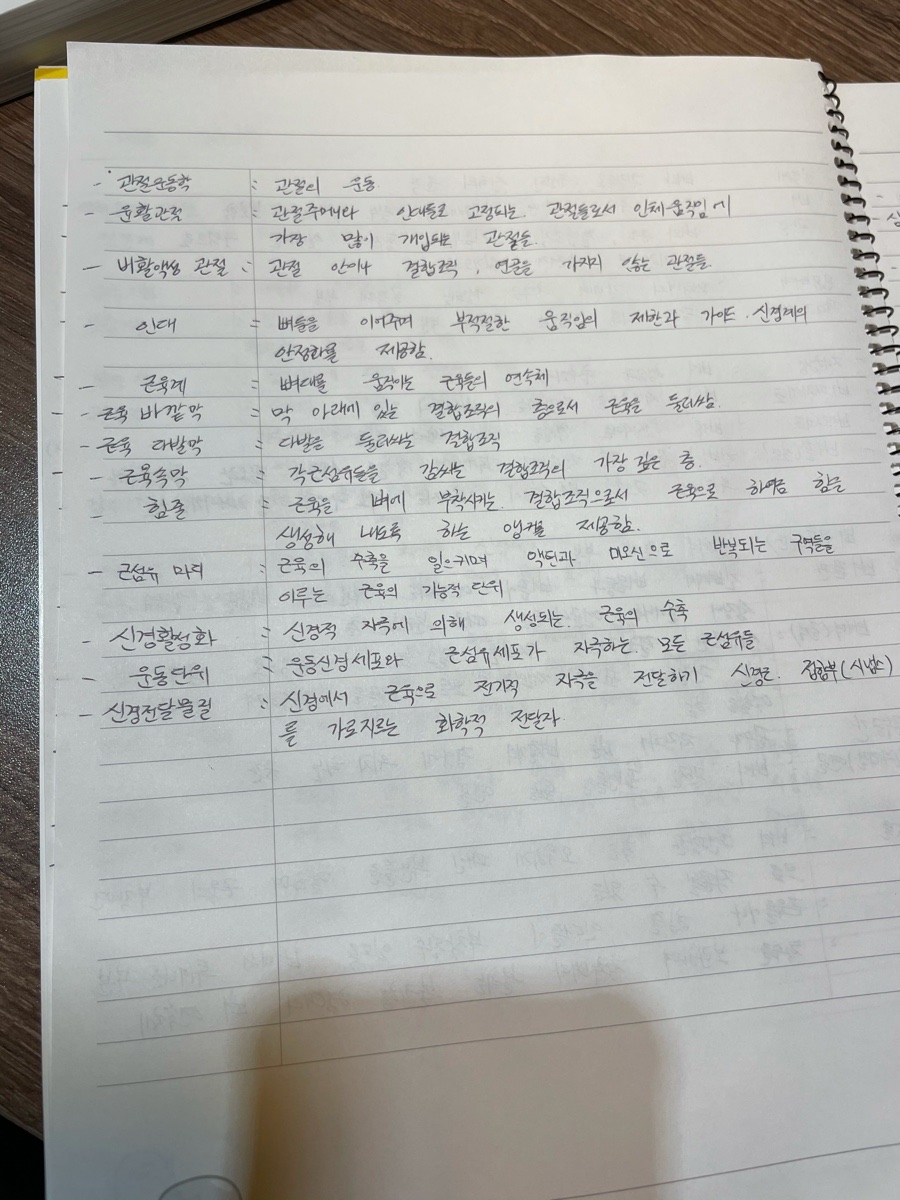 - 관절운동학 : 관절의 운동.
- 윤활관절 : 관절주머니와 인대들로 고정되는. 관절들로서 인체 움직임에
가장 많이 개입되는 관절들.
- 비활액성 관절 : 관절 안이나 결합조직, 연골을 가지지 않는 관절들.
- 인대 : 뼈들을 이어주며 부적절한 움직임의 제한과 가이드. 신경계의
안정화를 제공함.
- 근육계 : 뼈대를 움직이는 근육들의 연속체
- 근육 바깥막 : 막 아래에 있는 결합조직의 층으로서 근육을 둘러쌈.
- 근육 다발막 : 다발을 둘러싸는 결합조직
- 근육속막 : 각근섬유들을 감싸는 결합조직의 가장 깊은 층.
- 힘줄 : 근육을 뼈에 부착시키는. 결합조직으로서 근육으로 하여금 힘을
생성해 내도록 하는 앵커를 제공함.
- 근섬유 마디 : 근육의 수축을 일으키며 액틴과 미오신으로 반복되는 구역들을
이루는 근육의 기능적 단위
- 신경활성화 : 신경적 자극에 의해 생성되는. 근육의 수축
- 운동단위 : 운동신경세포와 근섬유세포가 자극하는. 모든 근섬유들
- 신경전달물질 : 신경에서 근육으로 전기적 자극을 전달하기 신경근. 접합부(시냅스)
를 가로지르는 화학적 전달자